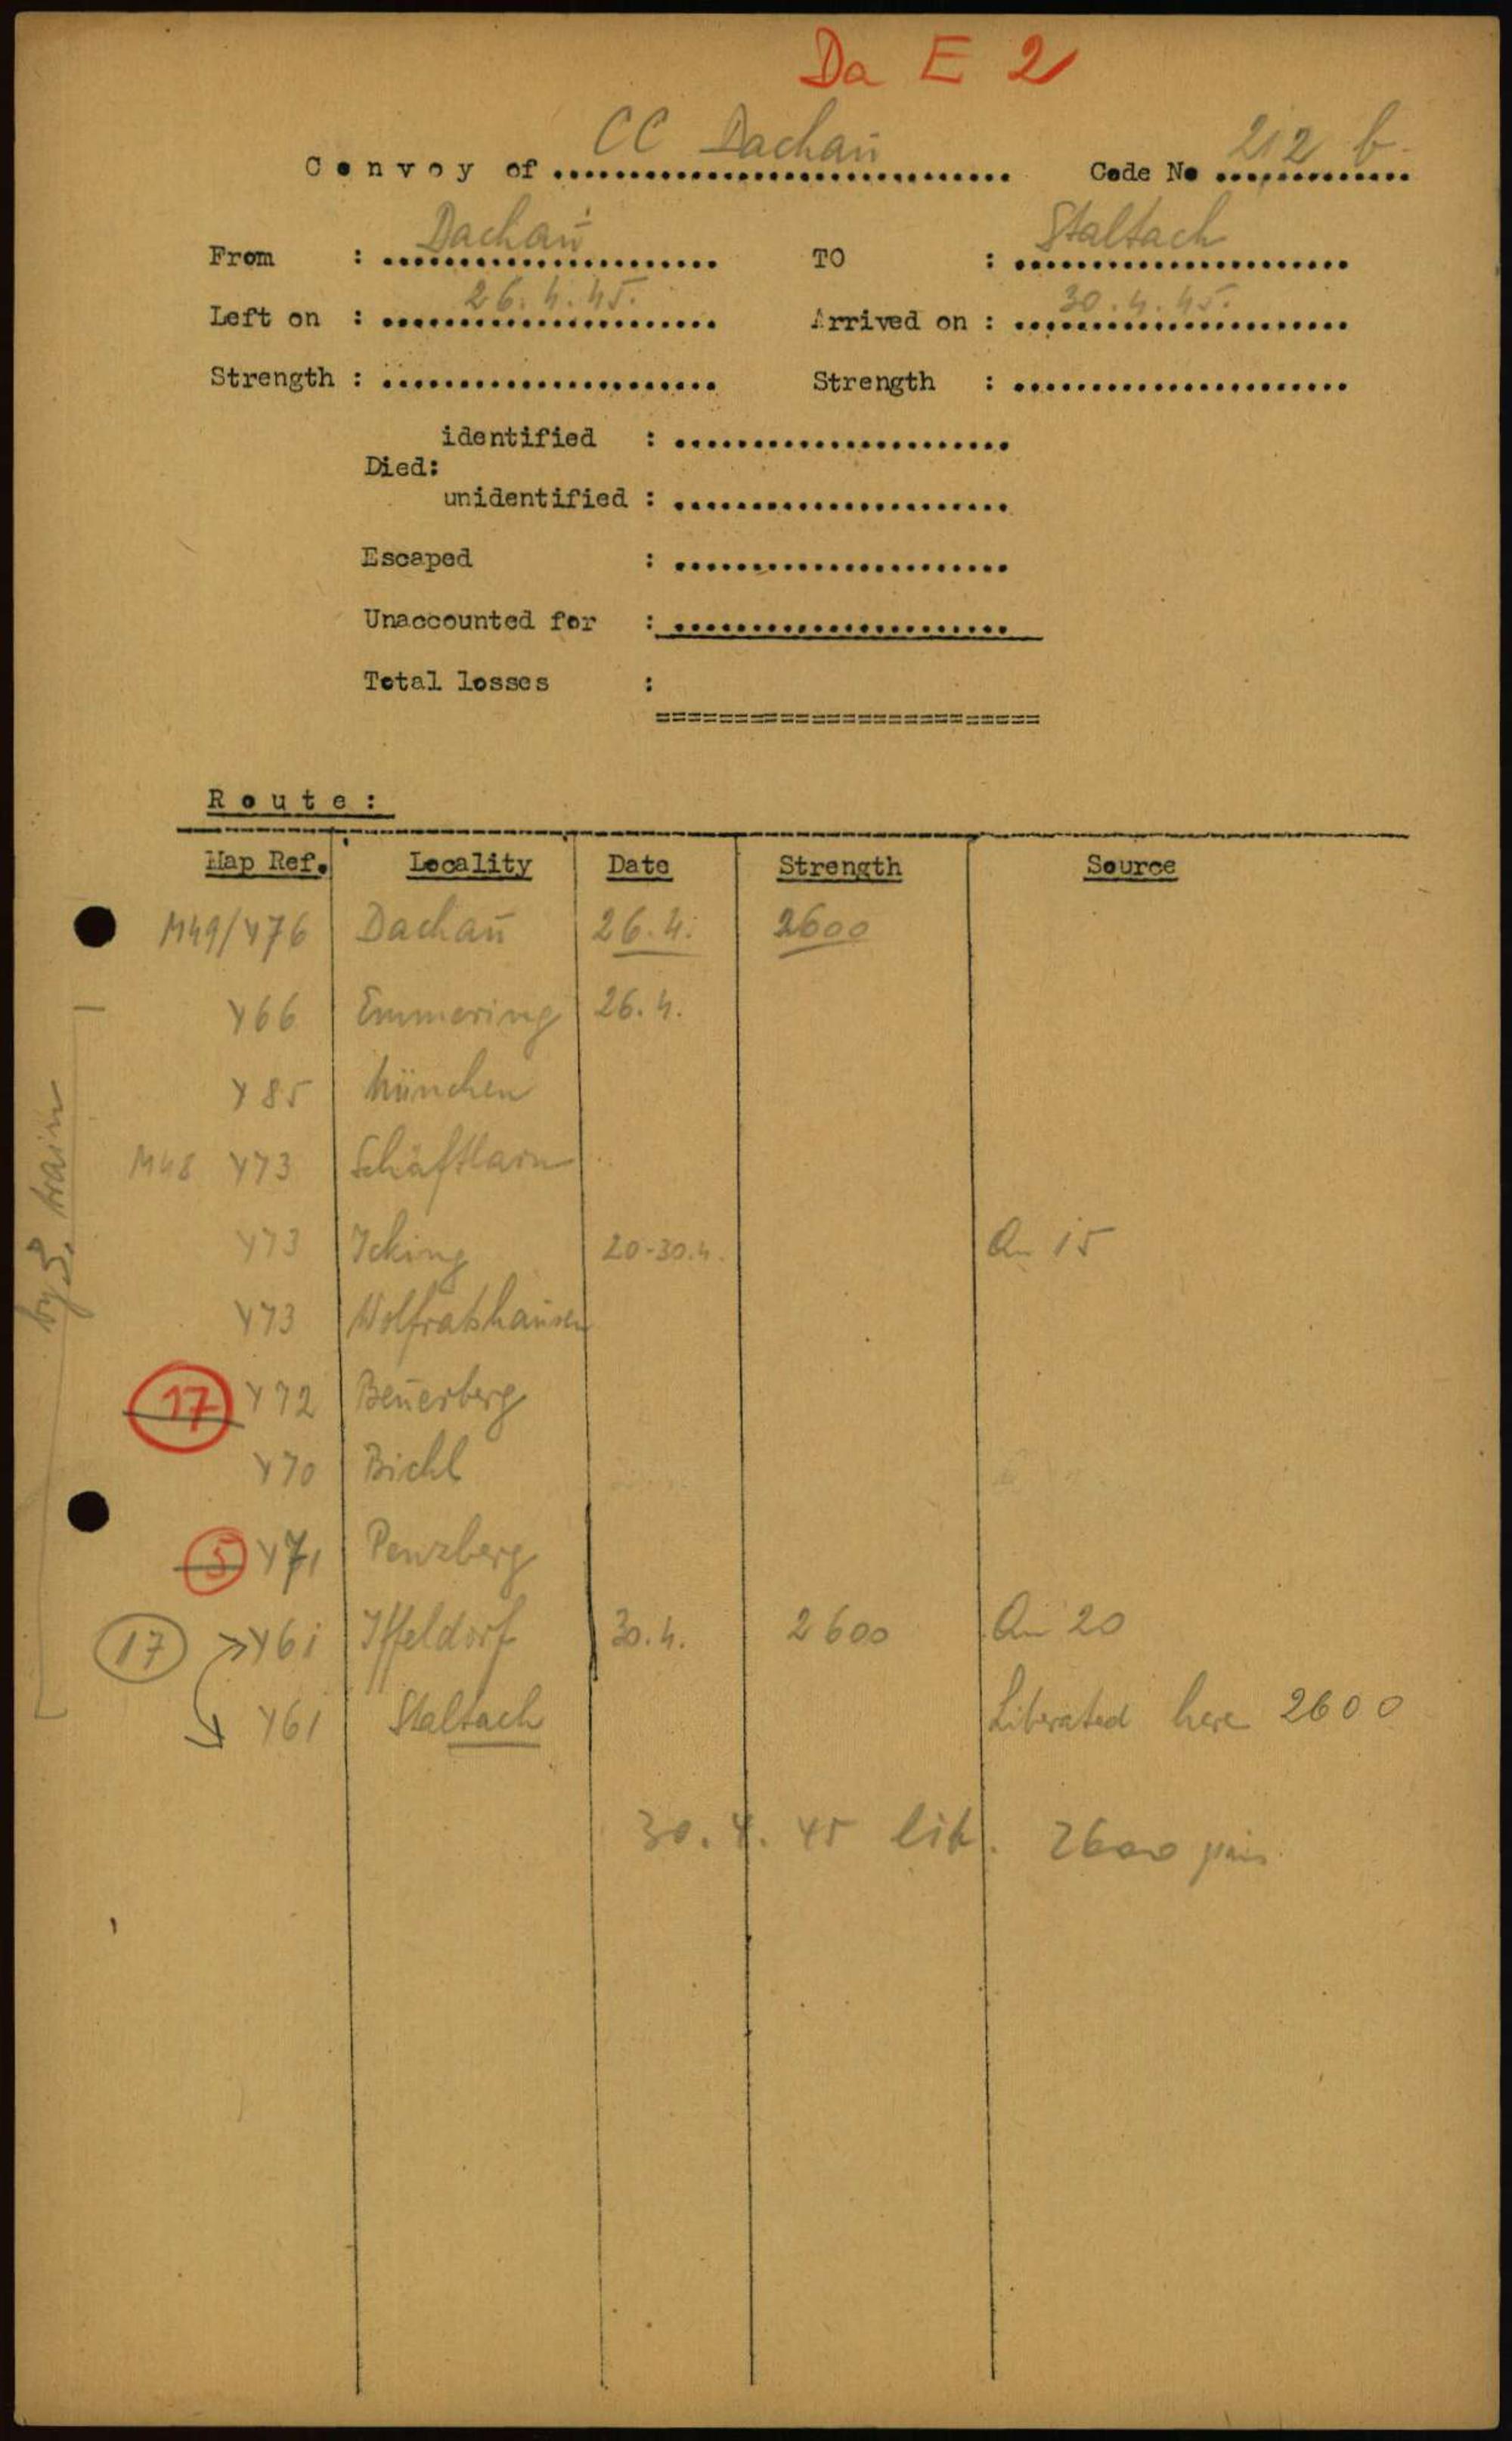 Da E 2
Convoy of CC Dachau Code No 212 b
From : Dachau TO : Staltach
Left on : 26.4.45. Arrived on : 30.4.45.
Strength : Strength :
identified :
Died:
unidentified :
Escaped :
Unaccounted for :
Total losses :
Route:
Map Ref. Locality Date Strength Source
M49/Y76 Dachau 26.4. 2600
Y66 Emmering 26.4.
Y85 München
M48 Y73 Schäftlarn
Y73 Icking 20-30.4. 15
Y73 Wolfratshausen
17 Y72 Beuerberg
Y70 Bichl
5 Y71 Penzberg
17 Y61 Iffeldorf 30.4. 2600 20
Y61 Staltach Liberated here 2600
30.4.45 lib. 2600
by train